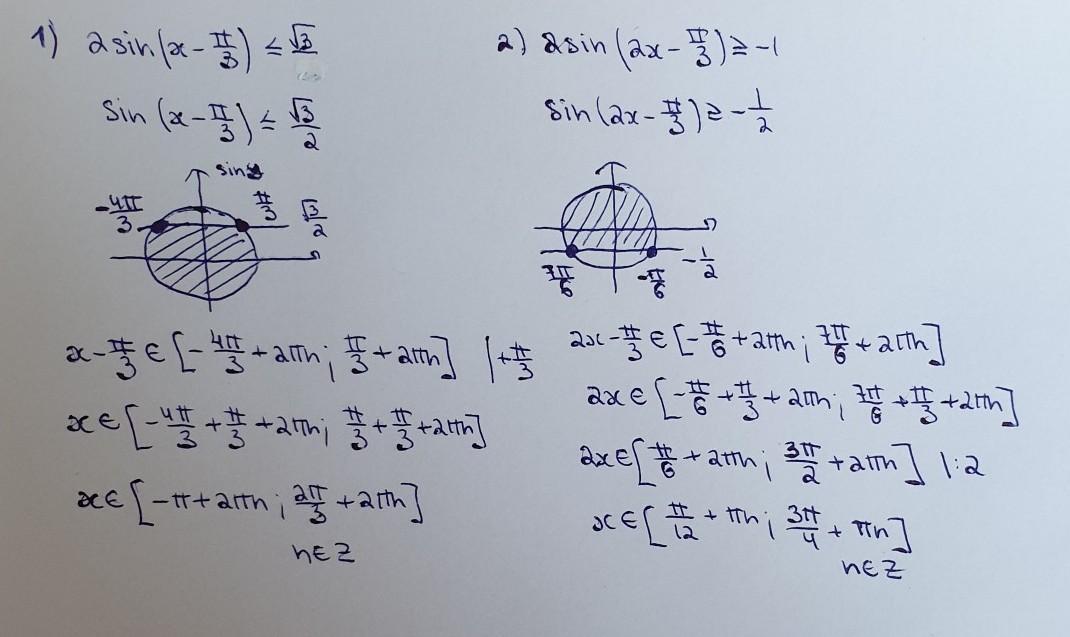 1) 2sin(x - π/3) ≤ √3
sin(x - π/3) ≤ √3/2
sin
-4π/3
π/3
√3/2
x - π/3 ∈ [-4π/3 + 2πn; π/3 + 2πn] | + π/3
x ∈ [-4π/3 + π/3 + 2πn; π/3 + π/3 + 2πn]
x ∈ [-π + 2πn; 2π/3 + 2πn]
n ∈ Z
2) 2sin(2x - π/3) ≥ -1
sin(2x - π/3) ≥ -1/2
-1/2
7π/6
-π/6
2x - π/3 ∈ [-π/6 + 2πn; 7π/6 + 2πn]
2x ∈ [-π/6 + π/3 + 2πn; 7π/6 + π/3 + 2πn]
2x ∈ [π/6 + 2πn; 3π/2 + 2πn] | : 2
x ∈ [π/12 + πn; 3π/4 + πn]
n ∈ Z